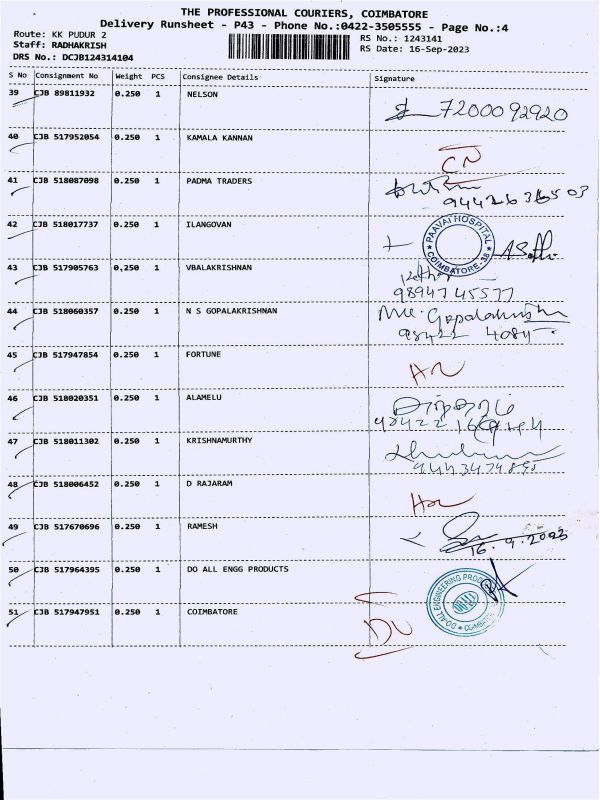 THE PROFESSIONAL COURIERS, COIMBATORE
Delivery Runsheet - P43 - Phone No.:0422-3505555 - Page No.:4
Route: KK PUDUR 2
Staff: RADHAKRISH
DRS No.: DCJB124314104
RS No.: 1243141
RS Date: 16-Sep-2023
S No Consignment No Weight PCS Consignee Details Signature
39 CJB 89811932 0.250 1 NELSON 7200092920
40 CJB 517952054 0.250 1 KAMALA KANNAN
41 CJB 518087098 0.250 1 PADMA TRADERS
42 CJB 518017737 0.250 1 ILANGOVAN
PAAVAI HOSPITAL
COIMBATORE-38
43 CJB 517905763 0.250 1 VBALAKRISHNAN
9894745577
44 CJB 518060357 0.250 1 N S GOPALAKRISHNAN
45 CJB 517947854 0.250 1 FORTUNE
46 CJB 518020351 0.250 1 ALAMELU
47 CJB 518011302 0.250 1 KRISHNAMURTHY
48 CJB 518006452 0.250 1 D RAJARAM
49 CJB 517670696 0.250 1 RAMESH
16.9.2023
50 CJB 517964395 0.250 1 DO ALL ENGG PRODUCTS
51 CJB 517947951 0.250 1 COIMBATORE